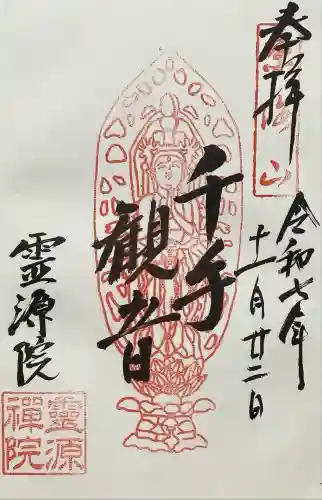 奉拝
令和七年
十一月廿二日
千手
観音
霊源院
靈源
禪院